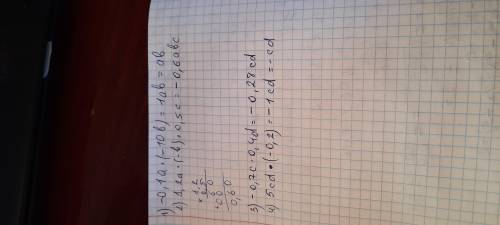 1) -0,1a · (-10b) = 1ab = ab
2) 1,2a · (-b) · 0,5c = -0,6abc
× 1,2
0,5
6 0
+ 0 0
0,6 0
3) -0,7c · 0,4d = -0,28cd
4) 5cd · (-0,2) = -1cd = -cd